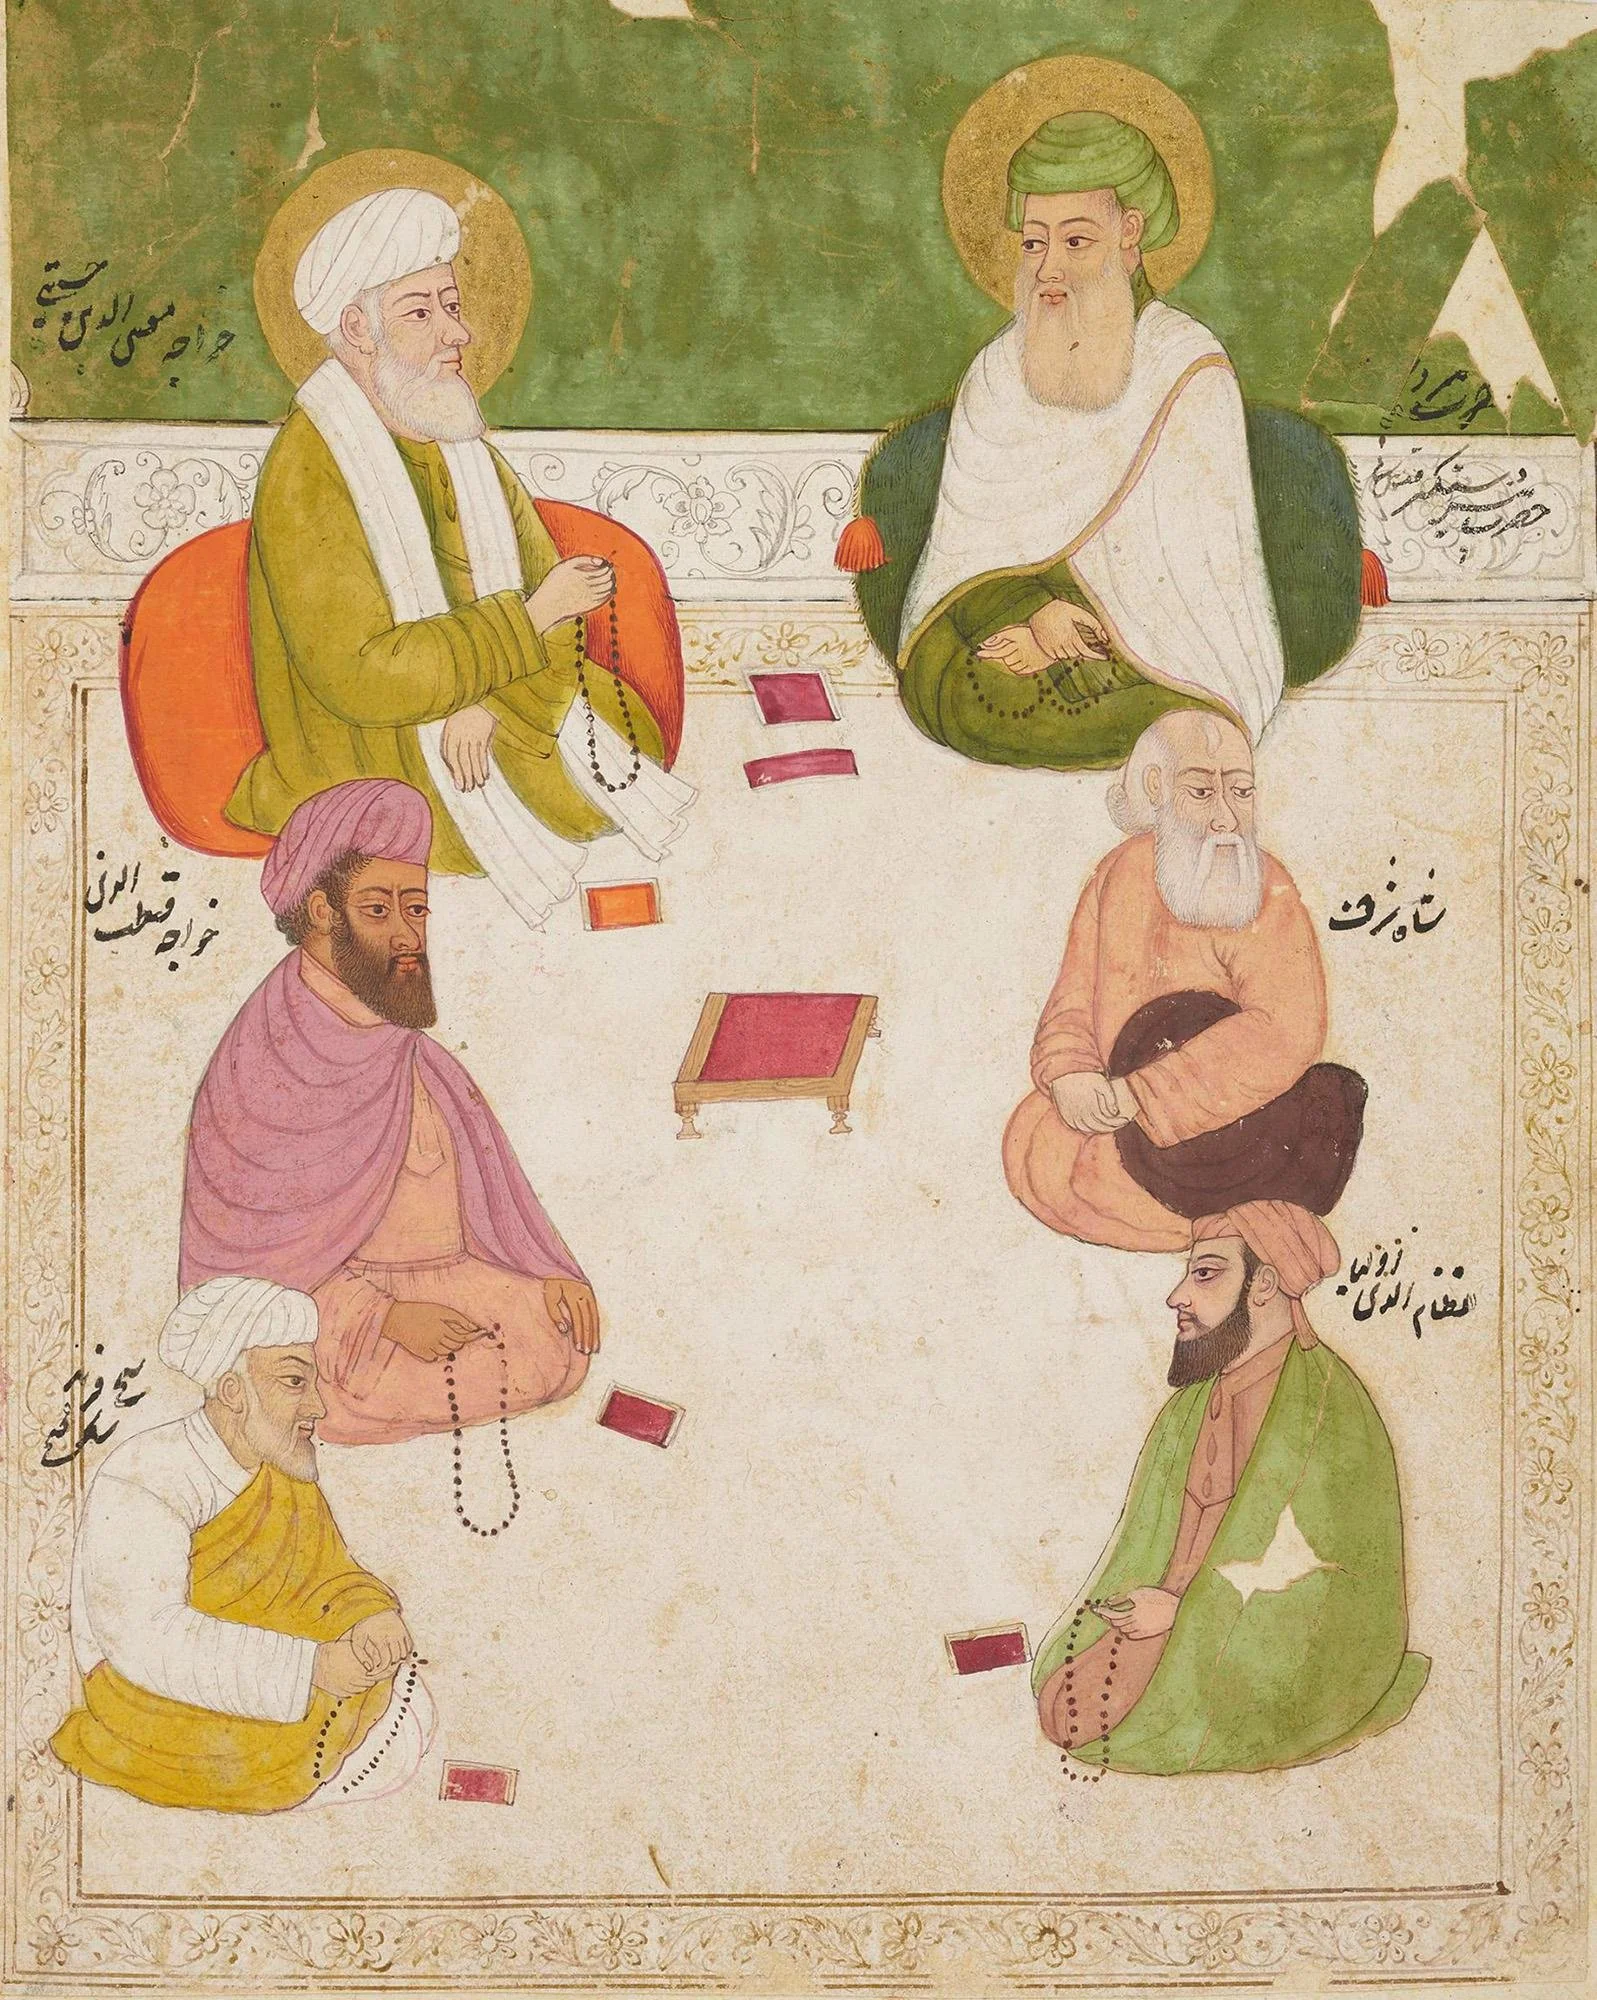 خواجه معین الدین چشتی
حضرت پیر دستگیر
خواجه قطب الدین
شاه شرف
نظام الدین اولیا
شیخ فرید
شکر گنج